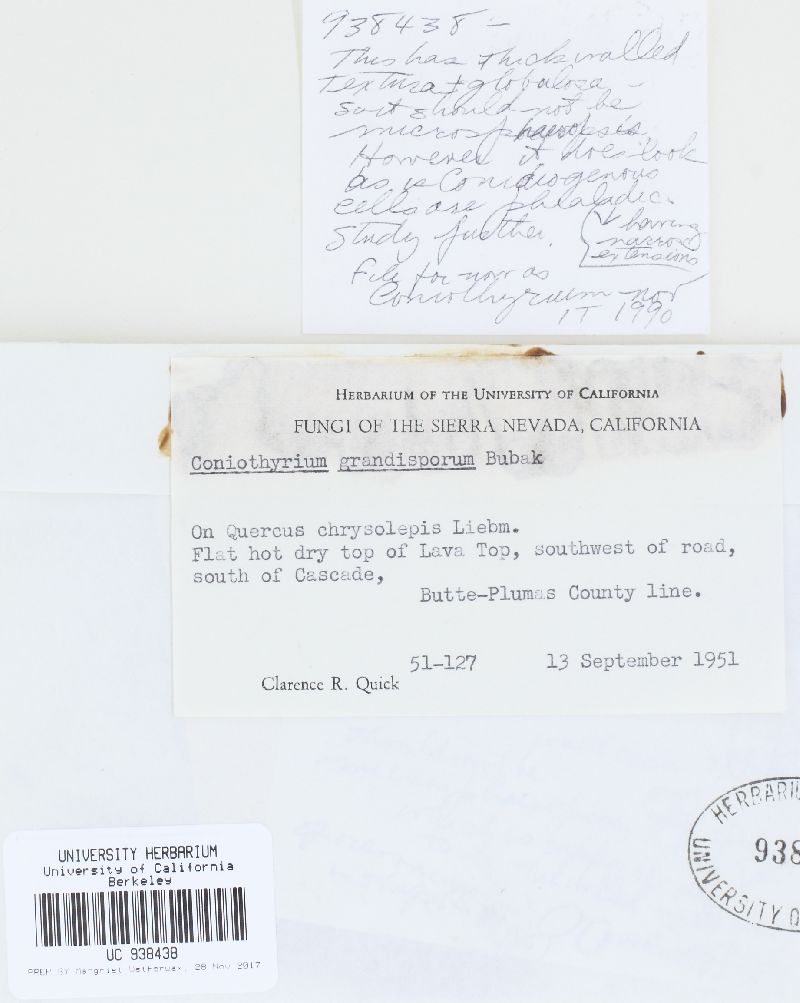 938438 -
This has thick walled
textura + globulosa -
so it should not be
microsphaeropsis
However it does look
as is Conidiogenous
cells are phialadic.
Study further. having
narrow
extensions
File for now as
Coniothyrium - nov
IT 1990
HERBARIUM OF THE UNIVERSITY OF CALIFORNIA
FUNGI OF THE SIERRA NEVADA, CALIFORNIA
Coniothyrium grandisporum Bubak
On Quercus chrysolepis Liebm.
Flat hot dry top of Lava Top, southwest of road,
south of Cascade,
Butte-Plumas County line.
51-127 13 September 1951
Clarence R. Quick
HERBARIU
938
UNIVERSITY O
UNIVERSITY HERBARIUM
University of California
Berkeley
UC 938438
PREP BY Margriet Wetherwax, 28 Nov 2017